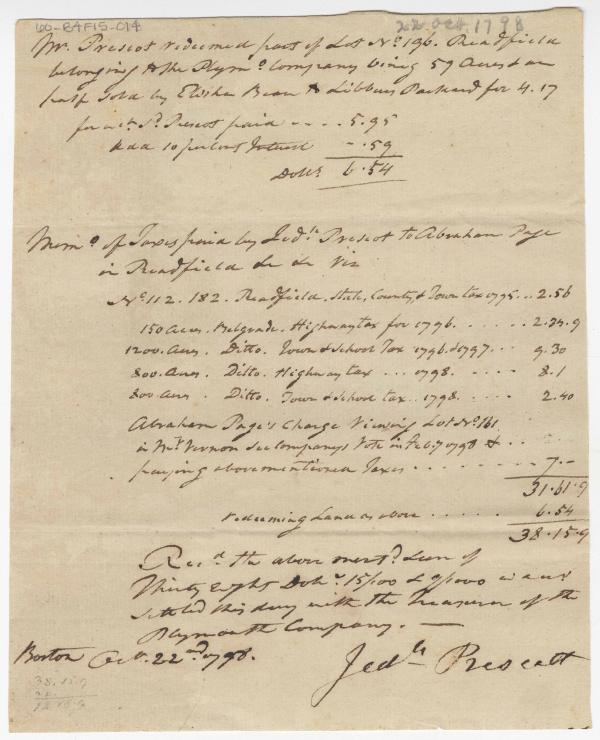 60-B4F15-014
22 Oct 1798
Mr. Prescot redeemed part of Lot No. 196. Readfield
belonging to the Plymo. Company being 59 Acres & an
half sold by Elisha Bean to Libbeus Packard for 4.17
for wch. Jd. Prescot paid .... 5.95
Add 10 per Cent Interest -.59
Dolls. 6.54
Memo. of Taxes paid by Jedh. Prescot to Abraham Page
in Readfield &c &c Viz
No. 112. 182. Readfield. State, County & Town tax 1795 .. 2.56
150 Acres. Belgrade. Highway tax for 1796 ...... 2.24.9
1200. Acres. Ditto. Town & School Tax 1796 & 1797 ... 9.30
800. Acres. Ditto. Highway tax ... 1798 .... 8.1
800 Acres. Ditto. Town & School tax .. 1798 .... 2.40
Abraham Page's Charge Viewing Lot No. 161
in Mt. Vernon See Companys Vote in Feb. 7 1798 &
paying abovementioned Taxes ........ 7.-
31.61.9
redeeming Land as above ...... 6.54
38.15.9
Recd. the above mentd. Sum of
Thirty Eight Dolls. 15/100 & 9/1000 in acct
settled this day with the Treasurer of the
Plymouth Company. —
Boston Oct. 22nd. 1798.
Jedh. Prescott
38.15.9
12.15.9